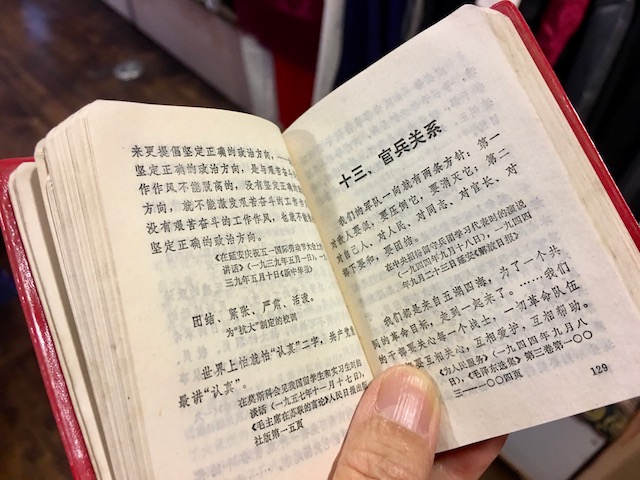 来更提倡坚定正确的政治方向,
坚定正确的政治方向,是与艰苦奋斗
作作风不能脱离的,没有坚定正确的
方向,就不能激发艰苦奋斗的工作作
没有艰苦奋斗的工作作风,也就不能
坚定正确的政治方向。
《在延安庆祝五一国际劳动节大会上
讲话》(一九三九年五月一日),一
三九年五月十日《新中华报》
团结、紧张、严肃、活泼。
为“抗大”制定的校训
世界上怕就怕“认真”二字,共产党就
最讲“认真”。
《在莫斯科会见我国留学生和实习生时的
谈话》(一九五七年十一月十七日),
《毛主席在苏联的言论》人民日报出版
社版第一五页
十三、官兵关系
我们的军队一向就有两条方针:第一
对敌人要狠,要压倒它,要消灭它;第二
对自己人,对人民、对同志、对官长、对
部下要和,要团结。
《在中央招待留守兵团学习代表时的演说
》(一九四四年九月十八日),一九四四
年九月二十三日延安《解放日报》
我们都是来自五湖四海,为了一个共
同的革命目标,走到一起来了。……我们
的干部要关心每一个战士,一切革命队伍
的人都要互相关心,互相爱护,互相帮助。
《为人民服务》(一九四四年九月八
日),《毛泽东选集》第三卷第一〇〇
三——一〇〇四页
129